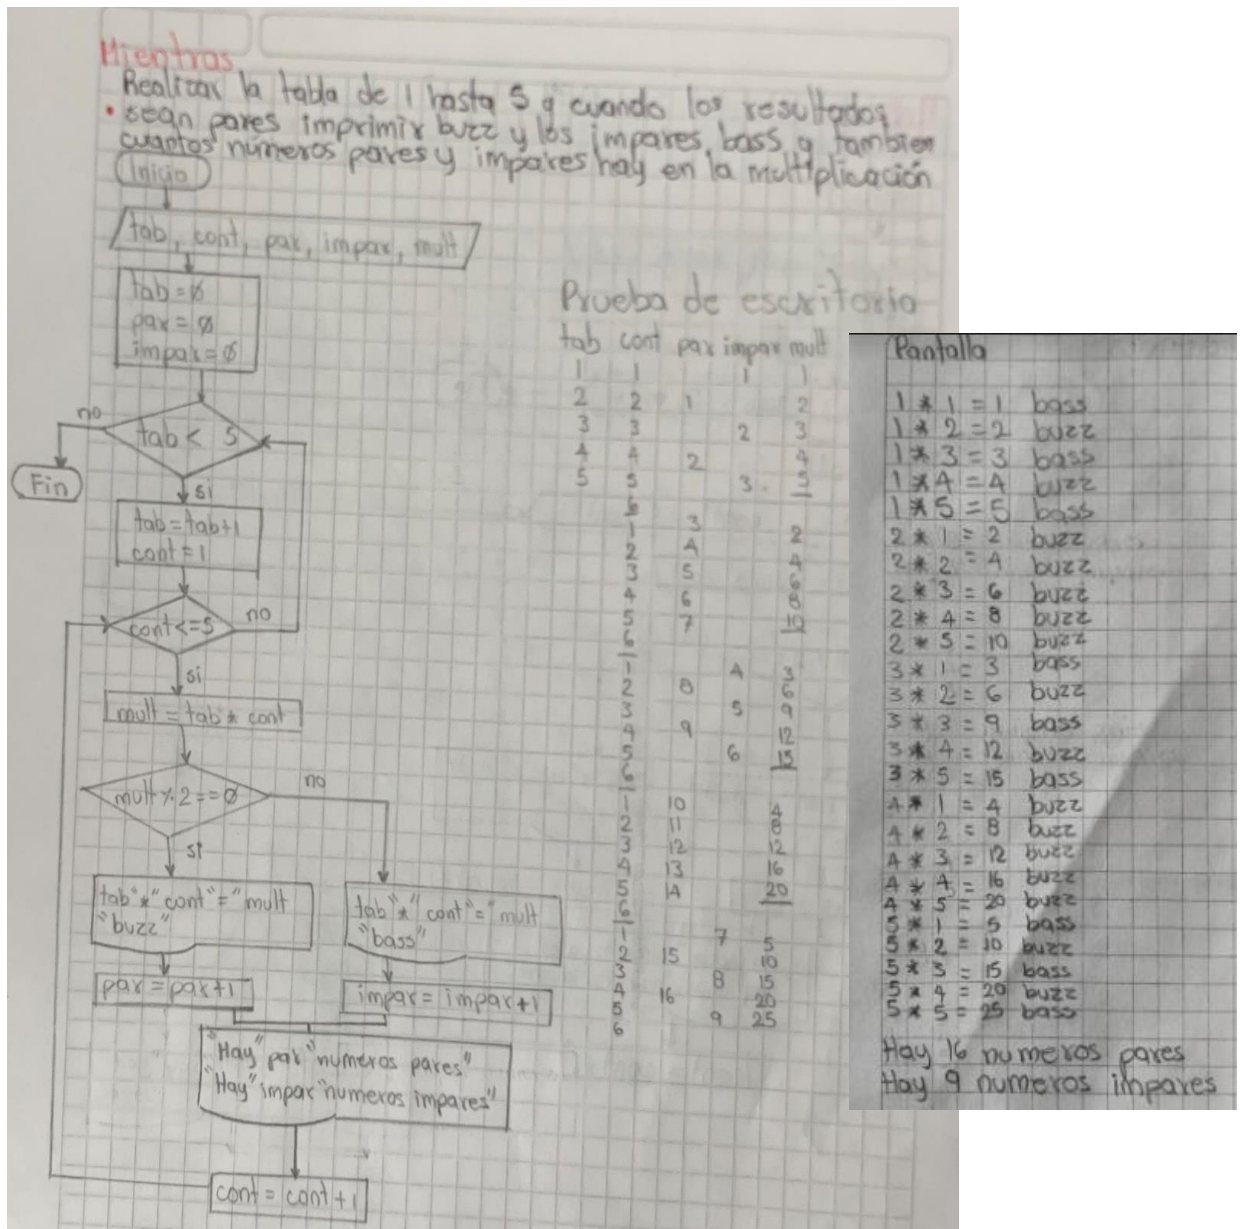 Mientras
Realizar la tabla de 1 hasta 5 y cuando los resultados
• sean pares imprimir buzz y los impares bass y tambien
cuantos números pares y impares hay en la multiplicación
Inicio
tab, cont, par, impar, mult
tab=ø
par=ø
impar=ø
tab < 5
no
Fin
si
tab=tab+1
cont=1
cont<=5
no
si
mult=tab*cont
mult%2==ø
no
si
tab"*"cont"="mult
"buzz"
tab"*"cont"="mult
"bass"
par=par+1
impar=impar+1
"Hay"par"numeros pares"
"Hay"impar"numeros impares"
cont=cont+1
Prueba de escritorio
tab cont par impar mult
1 1 1 1
2 2 1 2
3 3 2 3
4 4 2 4
5 5 3 5
6
1 3 2
2 4 4
3 5 6
4 6 8
5 7 10
6
1 4 3
2 8 6
3 5 9
4 9 12
5 6 15
6
1 10 4
2 11 8
3 12 12
4 13 16
5 14 20
6
1 7 5
2 15 10
3 8 15
4 16 20
5 9 25
6
Pantalla
1 * 1 = 1 bass
1 * 2 = 2 buzz
1 * 3 = 3 bass
1 * 4 = 4 buzz
1 * 5 = 5 bass
2 * 1 = 2 buzz
2 * 2 = 4 buzz
2 * 3 = 6 buzz
2 * 4 = 8 buzz
2 * 5 = 10 buzz
3 * 1 = 3 bass
3 * 2 = 6 buzz
3 * 3 = 9 bass
3 * 4 = 12 buzz
3 * 5 = 15 bass
4 * 1 = 4 buzz
4 * 2 = 8 buzz
4 * 3 = 12 buzz
4 * 4 = 16 buzz
4 * 5 = 20 buzz
5 * 1 = 5 bass
5 * 2 = 10 buzz
5 * 3 = 15 bass
5 * 4 = 20 buzz
5 * 5 = 25 bass
Hay 16 numeros pares
Hay 9 numeros impares